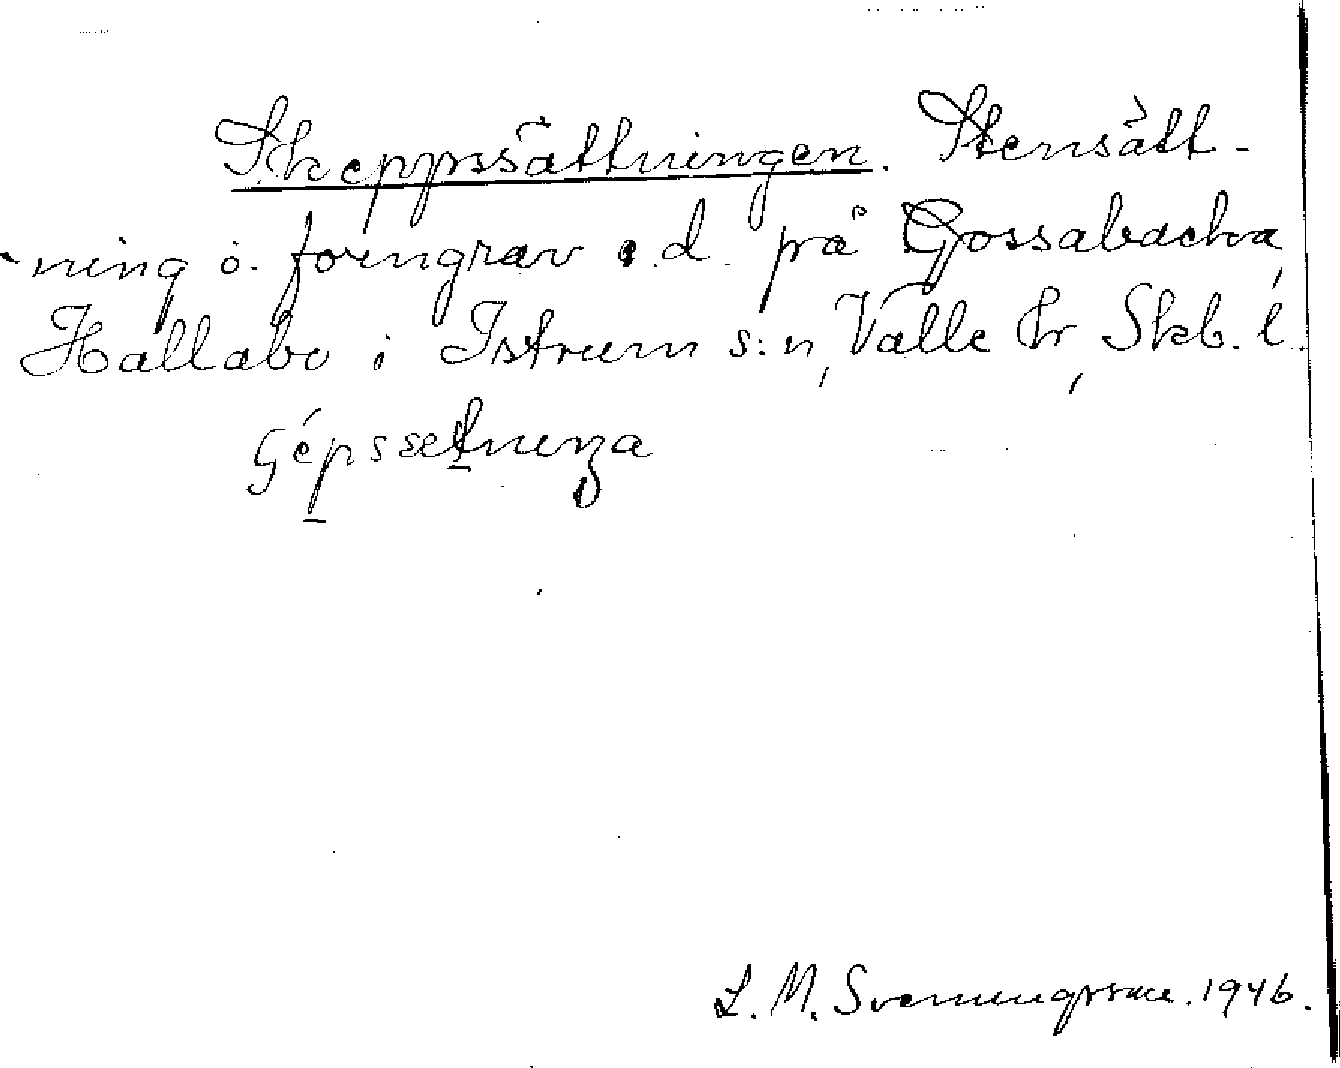 Skeppssättningen. Stensätt-
ning o. forngrav o.d. på Gossabacka,
Hallabo i Istrum s:n, Valle hr, Skb. l.
L. M. Svenungsson. 1946.